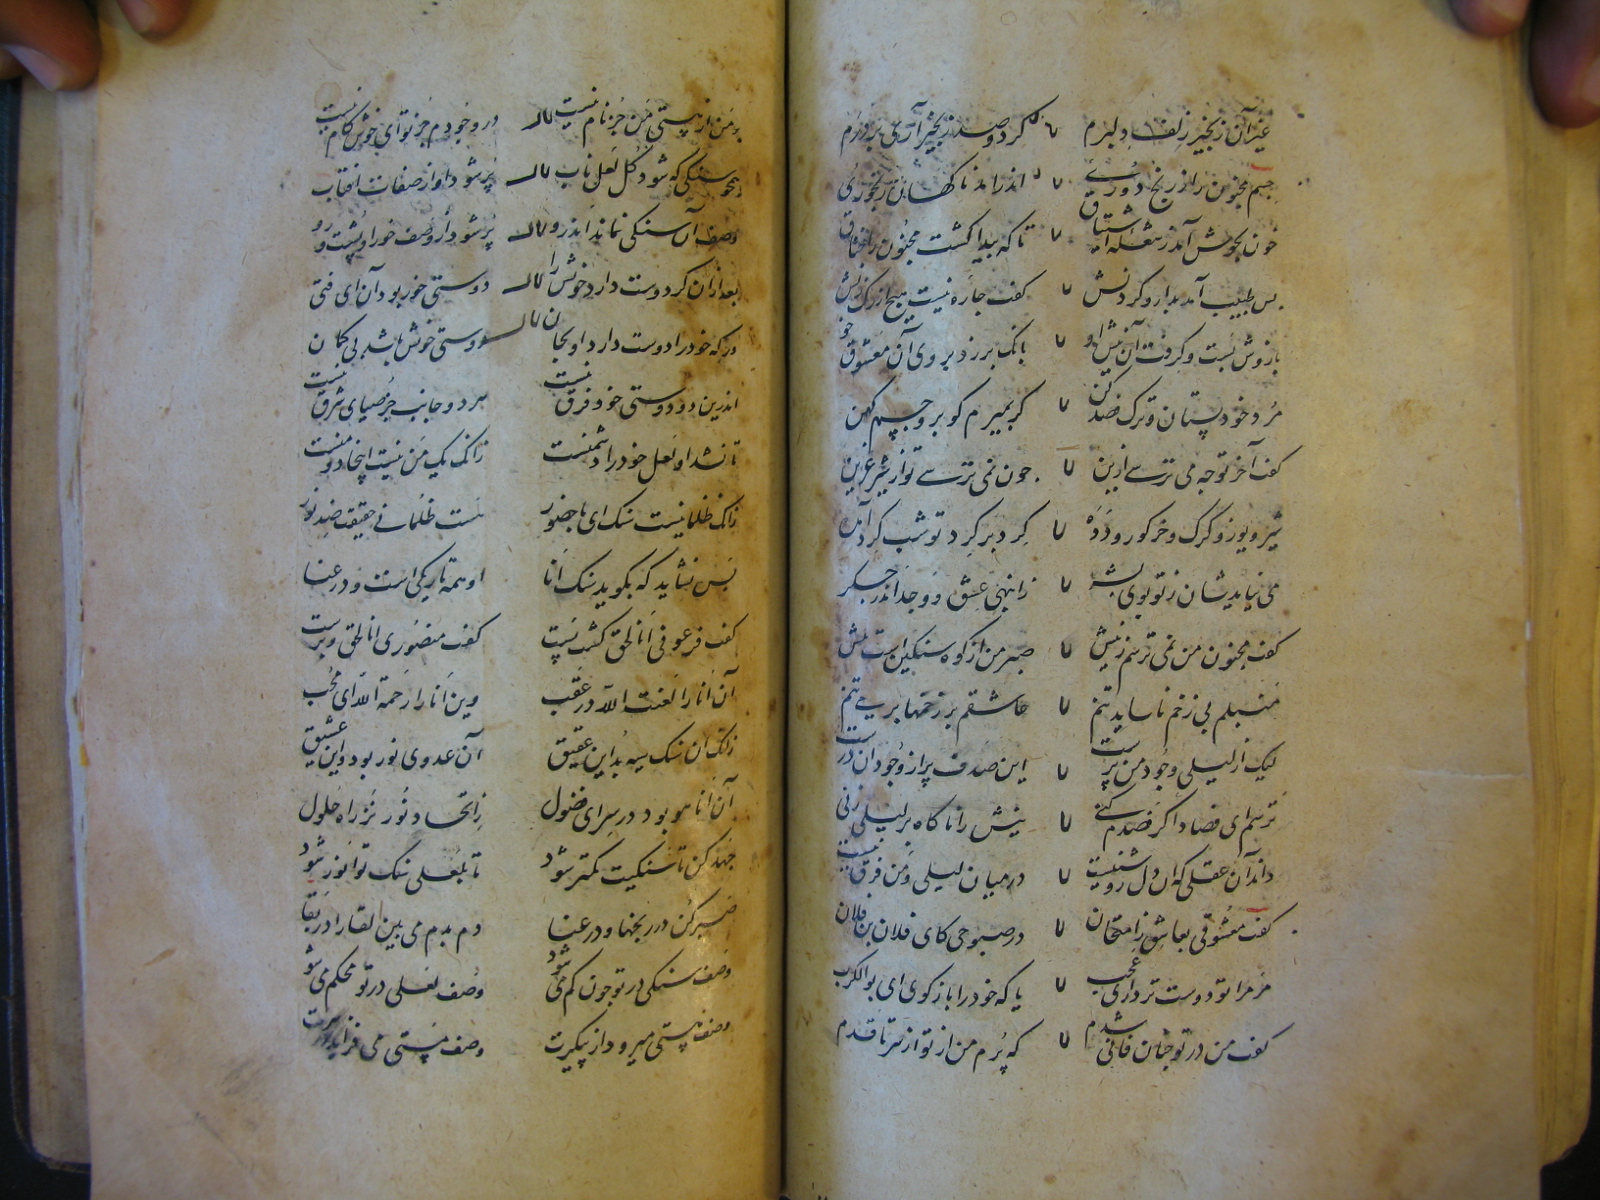 غیر آن زنجیر زلف دلبرم گر دو صد زنجیر آری بردرم
جسم مجنون را ز رنج دوریی اندر آمد ناگهان رنجوریی
خون بجوش آمد ز شعله اشتیاق تا که پیدا گشت مجنون را خناق
پس طبیب آمد بدارو کردنش گفت چاره نیست هیچ از رگ زنش
بازوش بست و گرفت آن نیش او بانک بر زد بر وی آن معشوق خو
مزد خود بستان و ترک فصد کن گر بمیرم گو برو جسم کهن
گفت آخر تو چه می ترسی ازین چون نمی ترسی تو از شیر عرین
شیر و یوز و گرک و خر گور و دده گرد بر گرد تو شب گرد آمده
می نیایدشان ز تو بوی بشر ز انبهی عشق و وجد اندر جگر
گفت مجنون من نمی ترسم ز نیش صبر من از کوه سنگین است بیش
منبلم بی زخم ناساید تنم عاشقم بر زخمها بر می تنم
لیک از لیلی وجود من پرست این صدف پر از وجود آن درست
ترسم ای فصاد اگر فصدم کنی نیش را ناگاه بر لیلی زنی
داند آن عقلی که آن دل روشنیست در میان لیلی و من فرق نیست
گفت معشوقی بعاشق ز امتحان در صبوحی کای فلان بن فلان
مر مرا تو دوست تر داری عجب یا که خود را باز گوی ای بو الکرب
گفت من در تو چنان فانی شدم که پرم من از تو از سر تا قدم
بر من از هستی من جز نام نیست در وجودم جز تو ای خوش کام نیست
همچو سنکی که شود کل لعل ناب پر شود او از صفات افتاب
وصف آن سنکی نماند اندرو پر شود از وصف خور او پشت و رو
بعد از آن گر دوست دارد خویش را دوستی خور بود آن ای فتی
ور که خود را دوست دارد او بجان دوستی خویش باشد بی گمان
اندرین دو دوستی خود فرق نیست هر دو جانب جز ضیای شرق نیست
تا نشد او لعل خود را دشمنست زانک یک من نیست اینجا دو منست
زانک ظلمانیست سنک ای با حضور هست ظلمانی حقیقت ضد نور
پس نشاید که بگوید سنک انا او همه تاریکی است و در عنا
گفت فرعونی انا الحق گشت پست گفت منصوری انا الحق و برست
آن انا را لعنت الله در عقب وین انا را رحمة الله ای محب
زانک آن سنک سیه بد این عقیق آن عدوی نور بود و این عشیق
آن انا هو بود در سر ای فضول ز اتحاد نور نز راه حلول
جهد کن تا سنگیت کمتر شود تا بلعلی سنک تو انور شود
صبر کن در رنجها و در عنا دم بدم می بین لقا را در بقا
وصف سنکی در تو چون کم می شود وصف لعلی در تو محکم می شود
وصف هستی میرود از پیکرت وصف مستی می فزاید در سرت